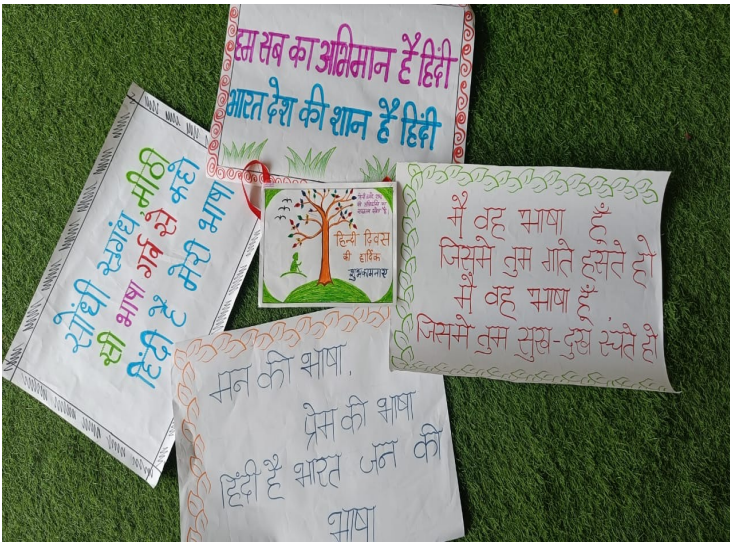 हम सब का अभिमान है हिंदी
भारत देश की शान है हिंदी
सोंधी सुगंध मीठी
सी भाषा गर्व से कहो
हिंदी है मेरी भाषा
हिन्दी दिवस
की हार्दिक
शुभकामनाएं
मै वह भाषा हूँ
जिसमे तुम गाते हँसते हो
मैं वह भाषा हूँ
जिसमे तुम सुख-दुख रचते हो
मन की भाषा,
प्रेम की भाषा
हिंदी है भारत जन की
भाषा